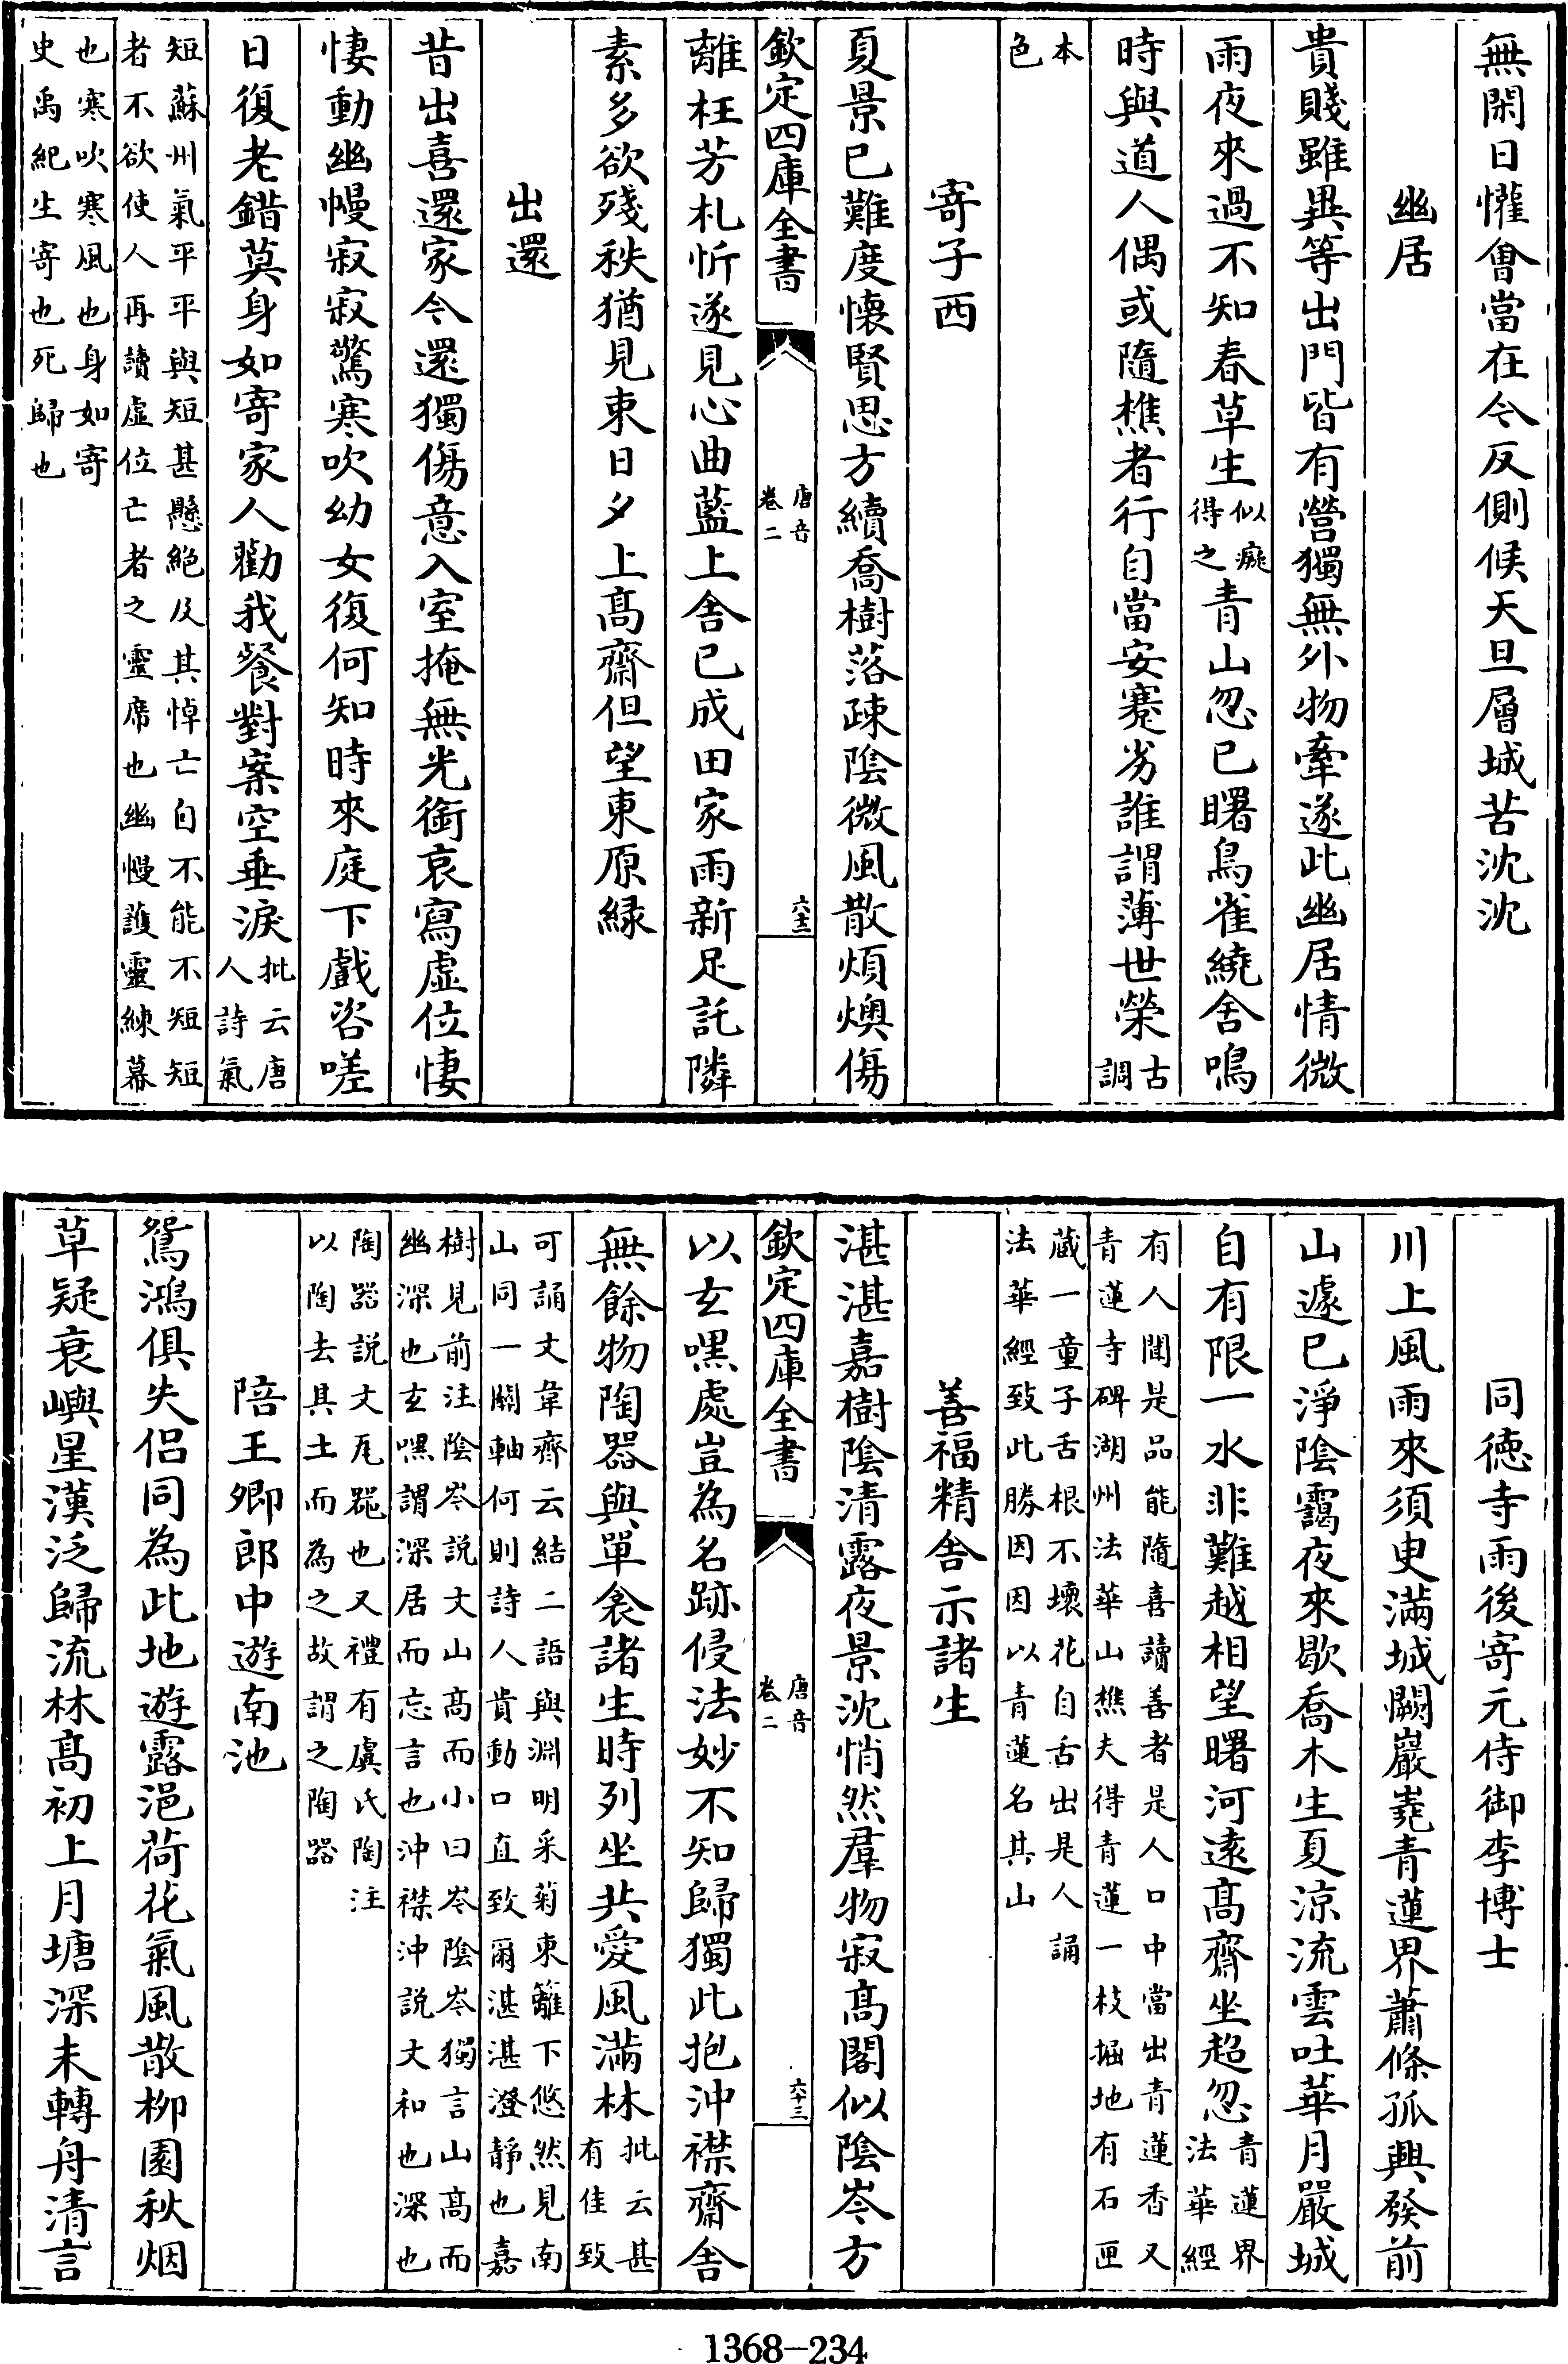 無閑日懽㑹當在今反側候天旦層城苦沈沈
幽居
貴賤雖異等出門皆有營獨無外物牽遂此幽居情微
雨夜來過不知春草生似癡得之青山忽已曙鳥雀繞舍鳴
時與道人偶或隨樵者行自當安蹇劣誰謂薄世榮古調
本色
寄子西
夏景已難度懐賢思方續喬樹落疎陰微風散煩燠傷
欽定四庫全書
唐音
卷二
六十二
離枉芳札忻遂見心曲藍上舍已成田家雨新足託隣
素多欲殘秩猶見束日夕上髙齋但望東原緑
出還
昔出喜還家今還獨傷意入室掩無光銜哀寫虚位悽
悽動幽幔寂寂驚寒吹幼女復何知時來庭下戲咨嗟
日復老錯莫身如寄家人勸我餐對案空垂淚批云唐人詩氣
短蘇州氣平平與短甚懸絶及其悼亡自不能不短短
者不欲使人再讀虚位亡者之靈席也幽慢護靈練幕
也寒吹寒風也身如寄
史禹紀生寄也死歸也
同徳寺雨後寄元侍御李博士
川上風雨來須臾滿城闕巖嶤青蓮界蕭條孤興發前
山遽已淨陰靄夜來歇喬木生夏涼流雲吐華月嚴城
自有限一水非難越相望曙河逺髙齋坐超忽青蓮界法華經
有人聞是品能隨喜讀善者是人口中當出青蓮香又
青蓮寺碑湖州法華山樵夫得青蓮一枝掘地有石匣
蔵一童子舌根不壊花自舌出是人誦
法華經致此勝因因以青蓮名其山
善福精舍示諸生
湛湛嘉樹陰清露夜景沈悄然羣物寂髙閣似陰岑方
欽定四庫全書
唐音
卷二
六十三
以𤣥嘿處豈為名跡侵法妙不知歸獨此抱沖襟齋舍
無餘物陶器與單衾諸生時列坐共愛風滿林批云甚有佳致
可誦文韋齊云結二語與淵明采菊東籬下悠然見南
山同一關軸何則詩人貴動口直致爾湛湛澄靜也嘉
樹見前注陰岑説文山髙而小曰岑陰岑獨言山髙而
幽深也𤣥嘿謂深居而忘言也沖襟沖説文和也深也
陶器説文瓦器也又禮有虞氏陶注
以陶去具土而為之故謂之陶器
陪王卿郎中遊南池
鴛鴻俱失侶同為此地遊露浥荷花氣風散柳園秋烟
草疑衰嶼星漢泛歸流林髙初上月塘深未轉舟清言
1368-234